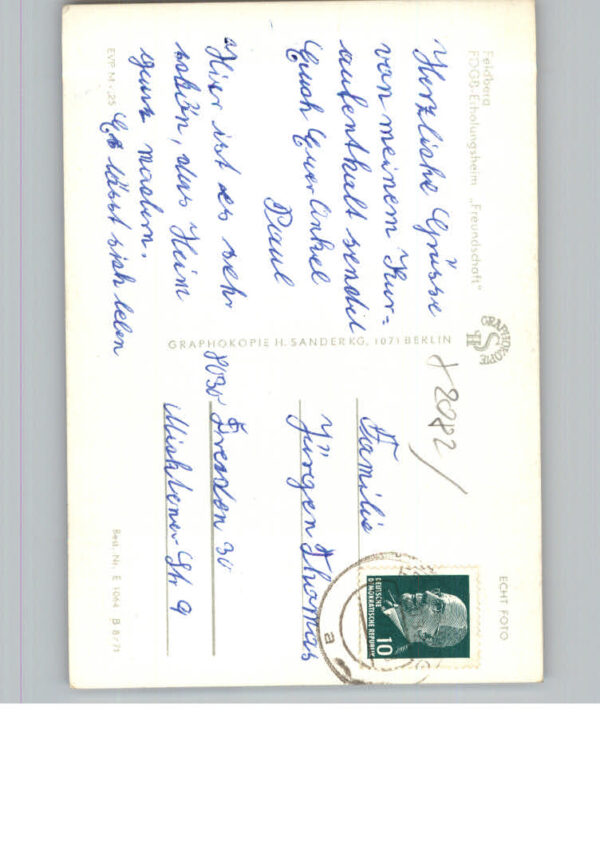 Feldberg
FDGB-Erholungsheim „Freundschaft"
Herzliche Grüsse
von meinem Kur-
aufenthalt sendet
Euch Euer Onkel
Paul
Hier ist es sehr
schön, das Heim
ganz modern.
Es lässt sich leben
EVP M -,25
GRAPHOKOPIE H. SANDER KG, 1071 BERLIN
GRAPHOKOPIE
HS
82082
ECHT FOTO
DEUTSCHE
DEMOKRATISCHE REPUBLIK
10
a
Familie
Jürgen Thomas
8030 Dresden 30
Micktener Str. 9
Best. Nr. E 1064 B 8/71